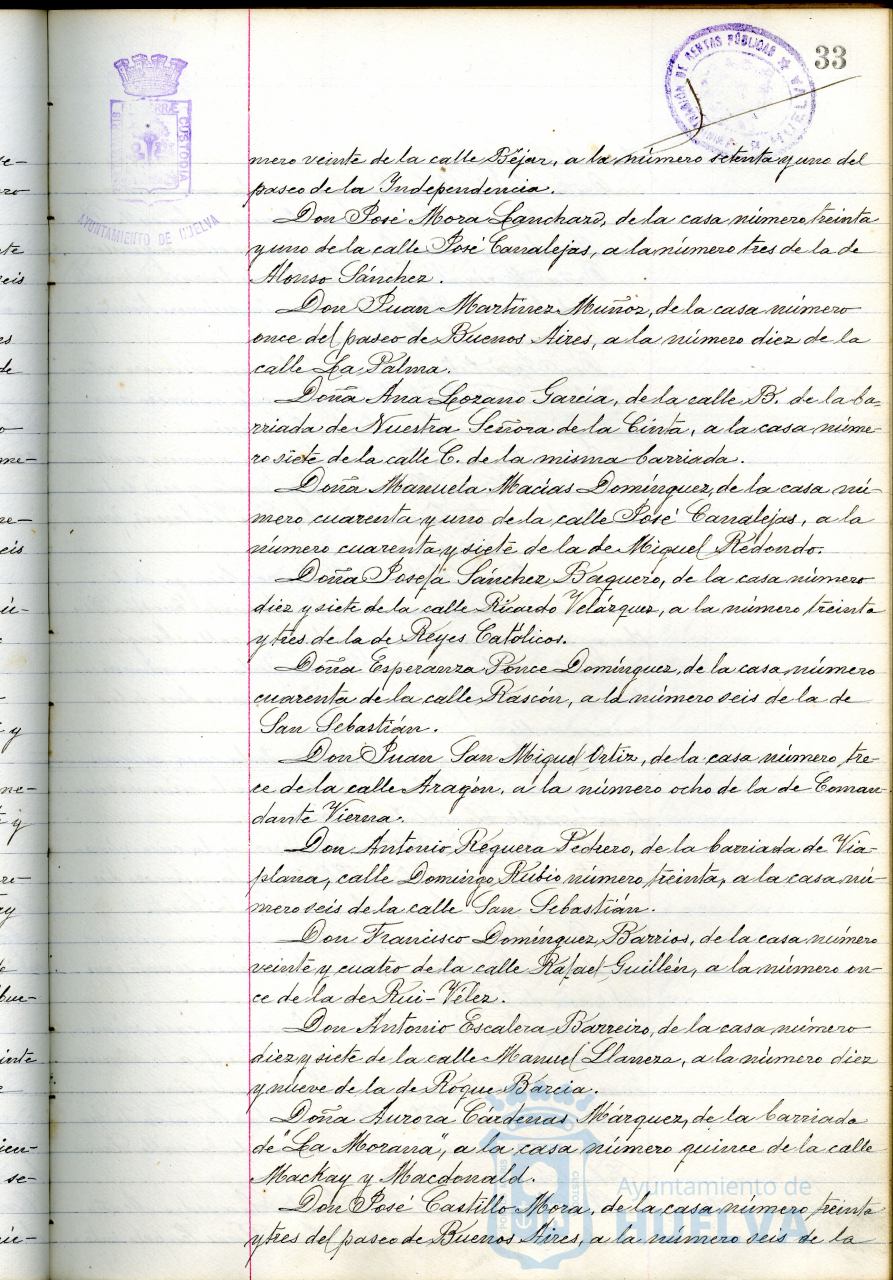 33
AYUNTAMIENTO DE HUELVA
CUSTODIA
mero veinte de la calle Béjar, a la número setenta y uno del
paseo de la Independencia.
Don José Mora Lanchazo, de la casa número treinta
y uno de la calle José Canalejas, a la número tres de la de
Alonso Sánchez.
Don Juan Martínez Muñoz, de la casa número
once del paseo de Buenos Aires, a la número diez de la
calle La Palma.
Doña Ana Lozano García, de la calle B. de la ba-
rriada de Nuestra Señora de la Cinta, a la casa núme-
ro siete de la calle C. de la misma barriada.
Doña Manuela Macías Domínguez, de la casa nú-
mero cuarenta y uno de la calle José Canalejas, a la
número cuarenta y siete de la de Miguel Redondo.
Doña Josefa Sánchez Baquero, de la casa número
diez y siete de la calle Ricardo Velázquez, a la número treinta
y tres de la de Reyes Católicos.
Doña Esperanza Ponce Domínguez, de la casa número
cuarenta de la calle Rascón, a la número seis de la de
San Sebastián.
Don Juan San Miguel Ortiz, de la casa número tre-
ce de la calle Aragón, a la número ocho de la de Coman-
dante Vierna.
Don Antonio Reguera Pedrero, de la barriada de Via-
plana, calle Domingo Rubio número treinta, a la casa nú-
mero seis de la calle San Sebastián.
Don Francisco Domínguez Barrios, de la casa número
veinte y cuatro de la calle Rafael Guillén, a la número on-
ce de la de Rui-Vélez.
Don Antonio Escalera Barreiro, de la casa número
diez y siete de la calle Manuel Llaneza, a la número diez
y nueve de la de Roque Barcia.
Doña Aurora Cárdenas Márquez, de la barriada
de "La Morana", a la casa número quince de la calle
Mackay y Macdonald.
Don José Castillo Mora, de la casa número treinta
y tres del paseo de Buenos Aires, a la número seis de la
Ayuntamiento de
HUELVA